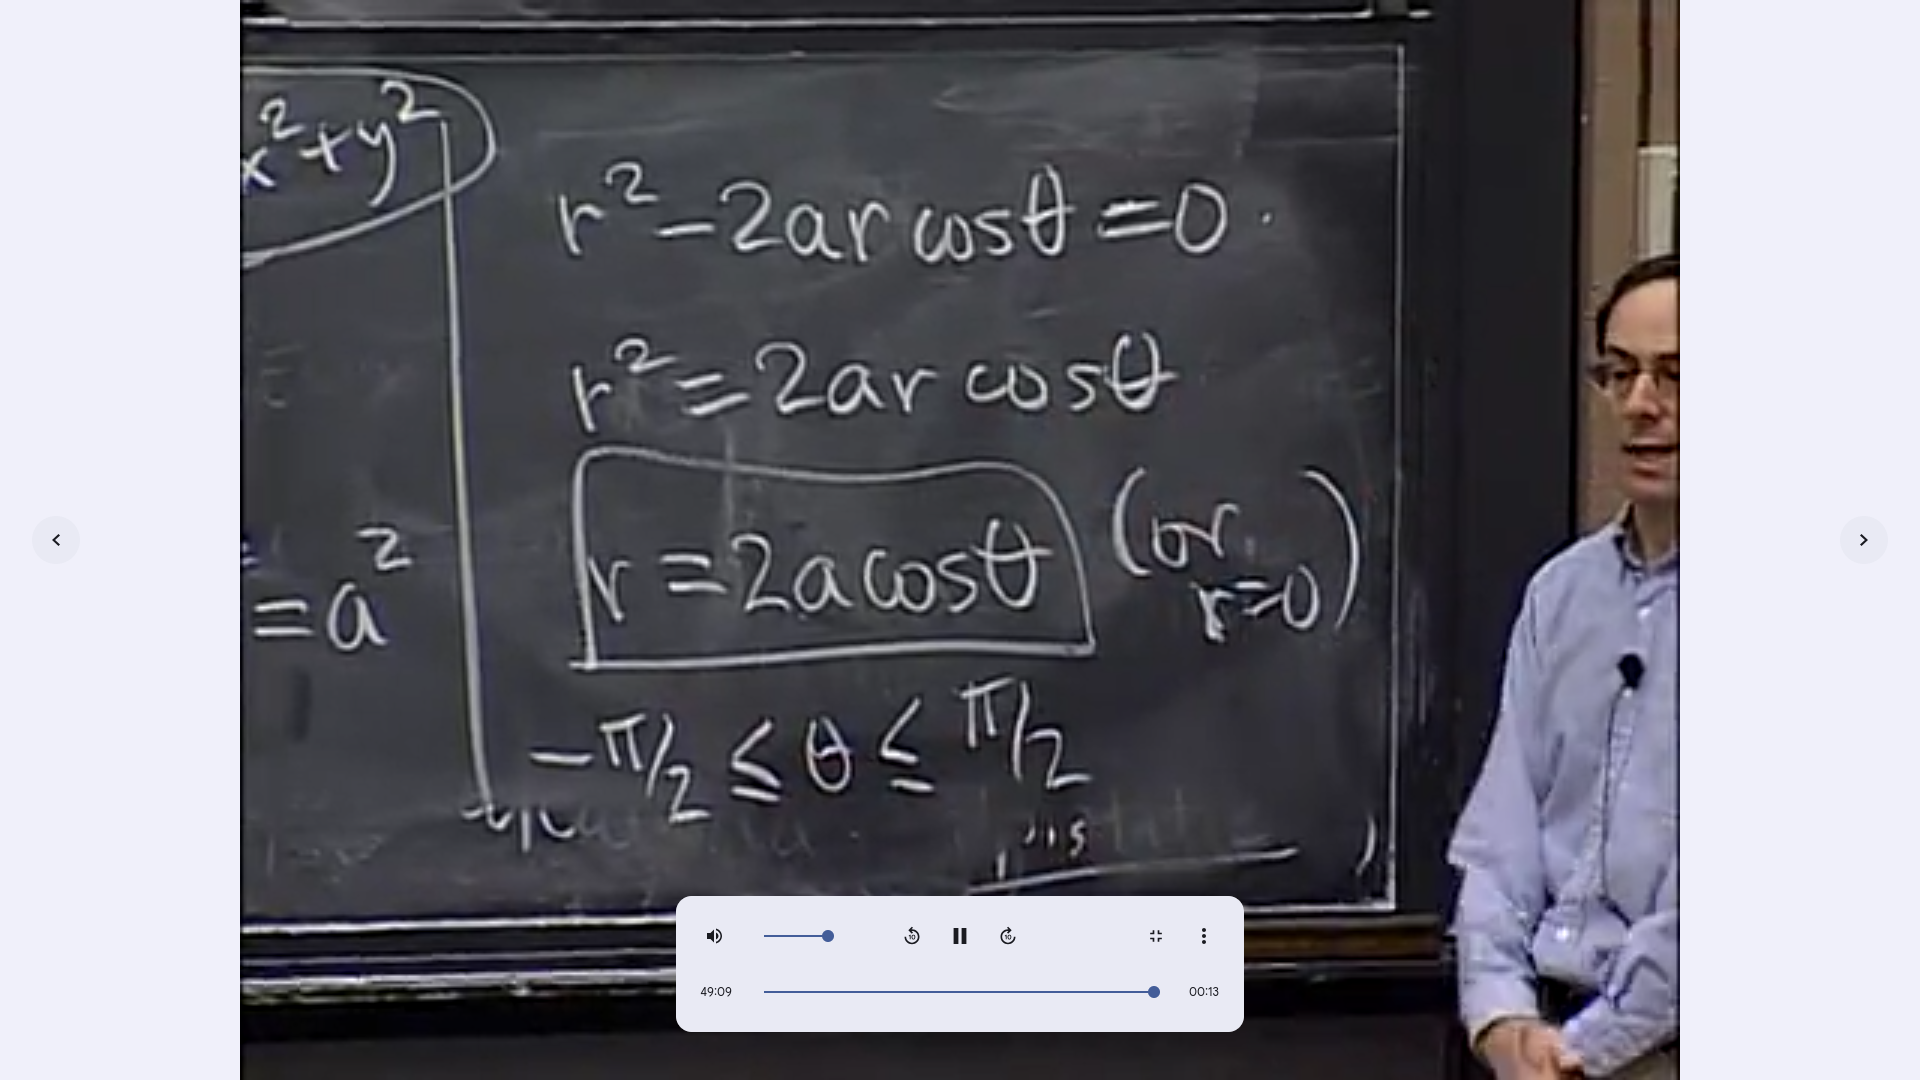 x²+y²
= a²
r² − 2ar cosθ = 0.
r² = 2ar cosθ
r = 2a cosθ (or r=0)
−π/2 ≤ θ ≤ π/2
10
10
49:09
00:13